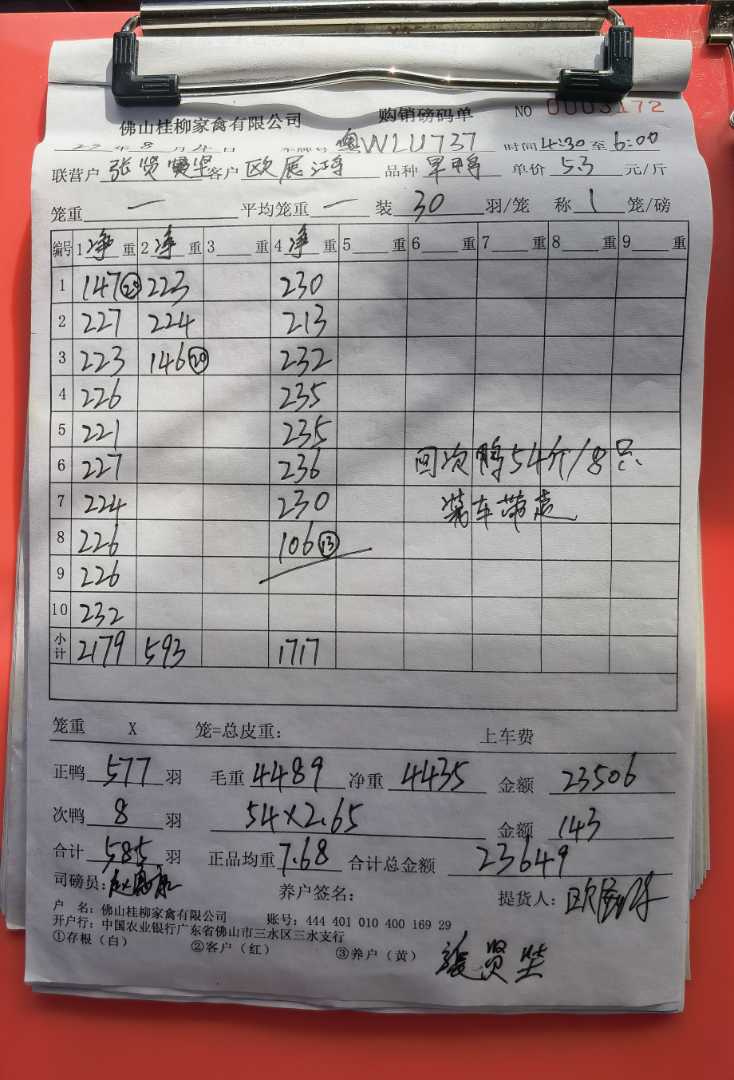 佛山桂柳家禽有限公司 购销磅码单 NO 0003172
年 8 月 日 粤WLU737 时间 4:30 至 6:00
联营户 张贤坚 客户 欧展鸿 品种 旱鸭 单价 5.3 元/斤
笼重 一 平均笼重 一 装 30 羽/笼 称 1 笼/磅
编号 1 净 重 2 净 重 3 重 4 净 重 5 重 6 重 7 重 8 重 9 重
1 147⑳ 223 230
2 227 224 213
3 223 146⑳ 232
4 226 235
5 221 235
6 227 236 回次鸭54斤/8只
7 224 230 装车带走
8 226 106⑬
9 226
10 232
小计 2179 593 1717
笼重 X 笼=总皮重： 上车费
正鸭 577 羽 毛重 4489 净重 4435 金额 23506
次鸭 8 羽 54×2.65 金额 143
合计 585 羽 正品均重 7.68 合计总金额 23649
司磅员： 养户签名： 提货人：欧展鸿
户 名：佛山桂柳家禽有限公司 账号：444 401 010 400 169 29
开户行：中国农业银行广东省佛山市三水区三水支行
①存根（白） ②客户（红） ③养户（黄） 张贤坚